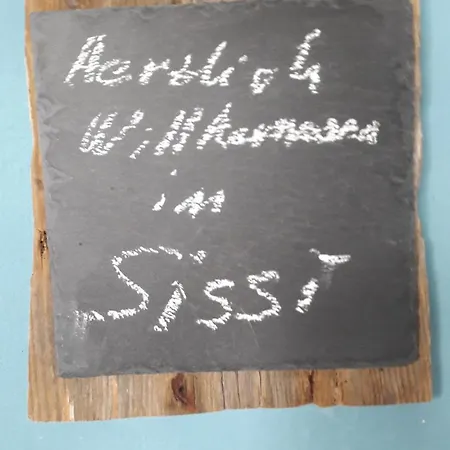 Herzlich
Willkommen
in
Sissi